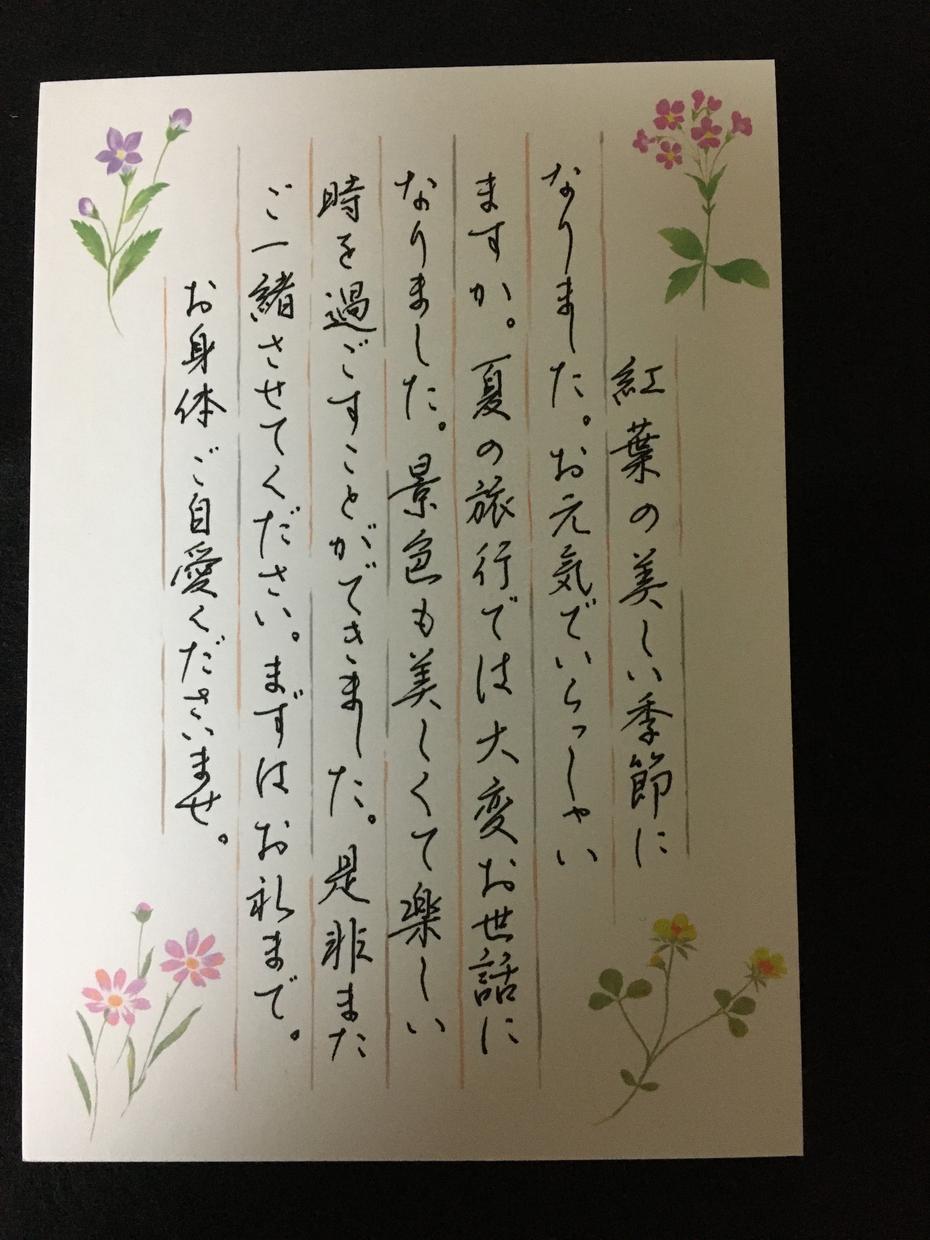 紅葉の美しい季節に
なりました。お元気でいらっしゃい
ますか。夏の旅行では大変お世話に
なりました。景色も美しくて楽しい
時を過ごすことができました。是非また
ご一緒させてください。まずはお礼まで。
お身体ご自愛くださいませ。